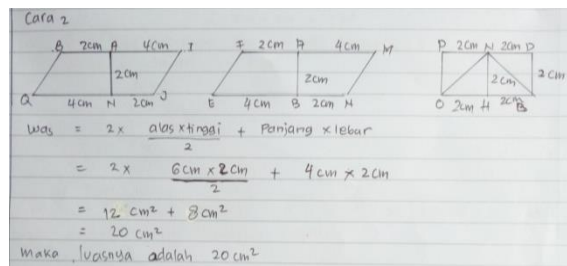 Cara 2
B 2cm A 4cm I F 2cm A 4cm M P 2cm N 2cm D
2cm 2cm 2cm 2cm
Q 4cm N 2cm J E 4cm B 2cm N O 2cm H 2cm B
Luas = 2 x alas x tinggi / 2 + Panjang x lebar
= 2 x 6 cm x 2 cm / 2 + 4 cm x 2 cm
= 12 cm² + 8 cm²
= 20 cm²
Maka, luasnya adalah 20 cm²